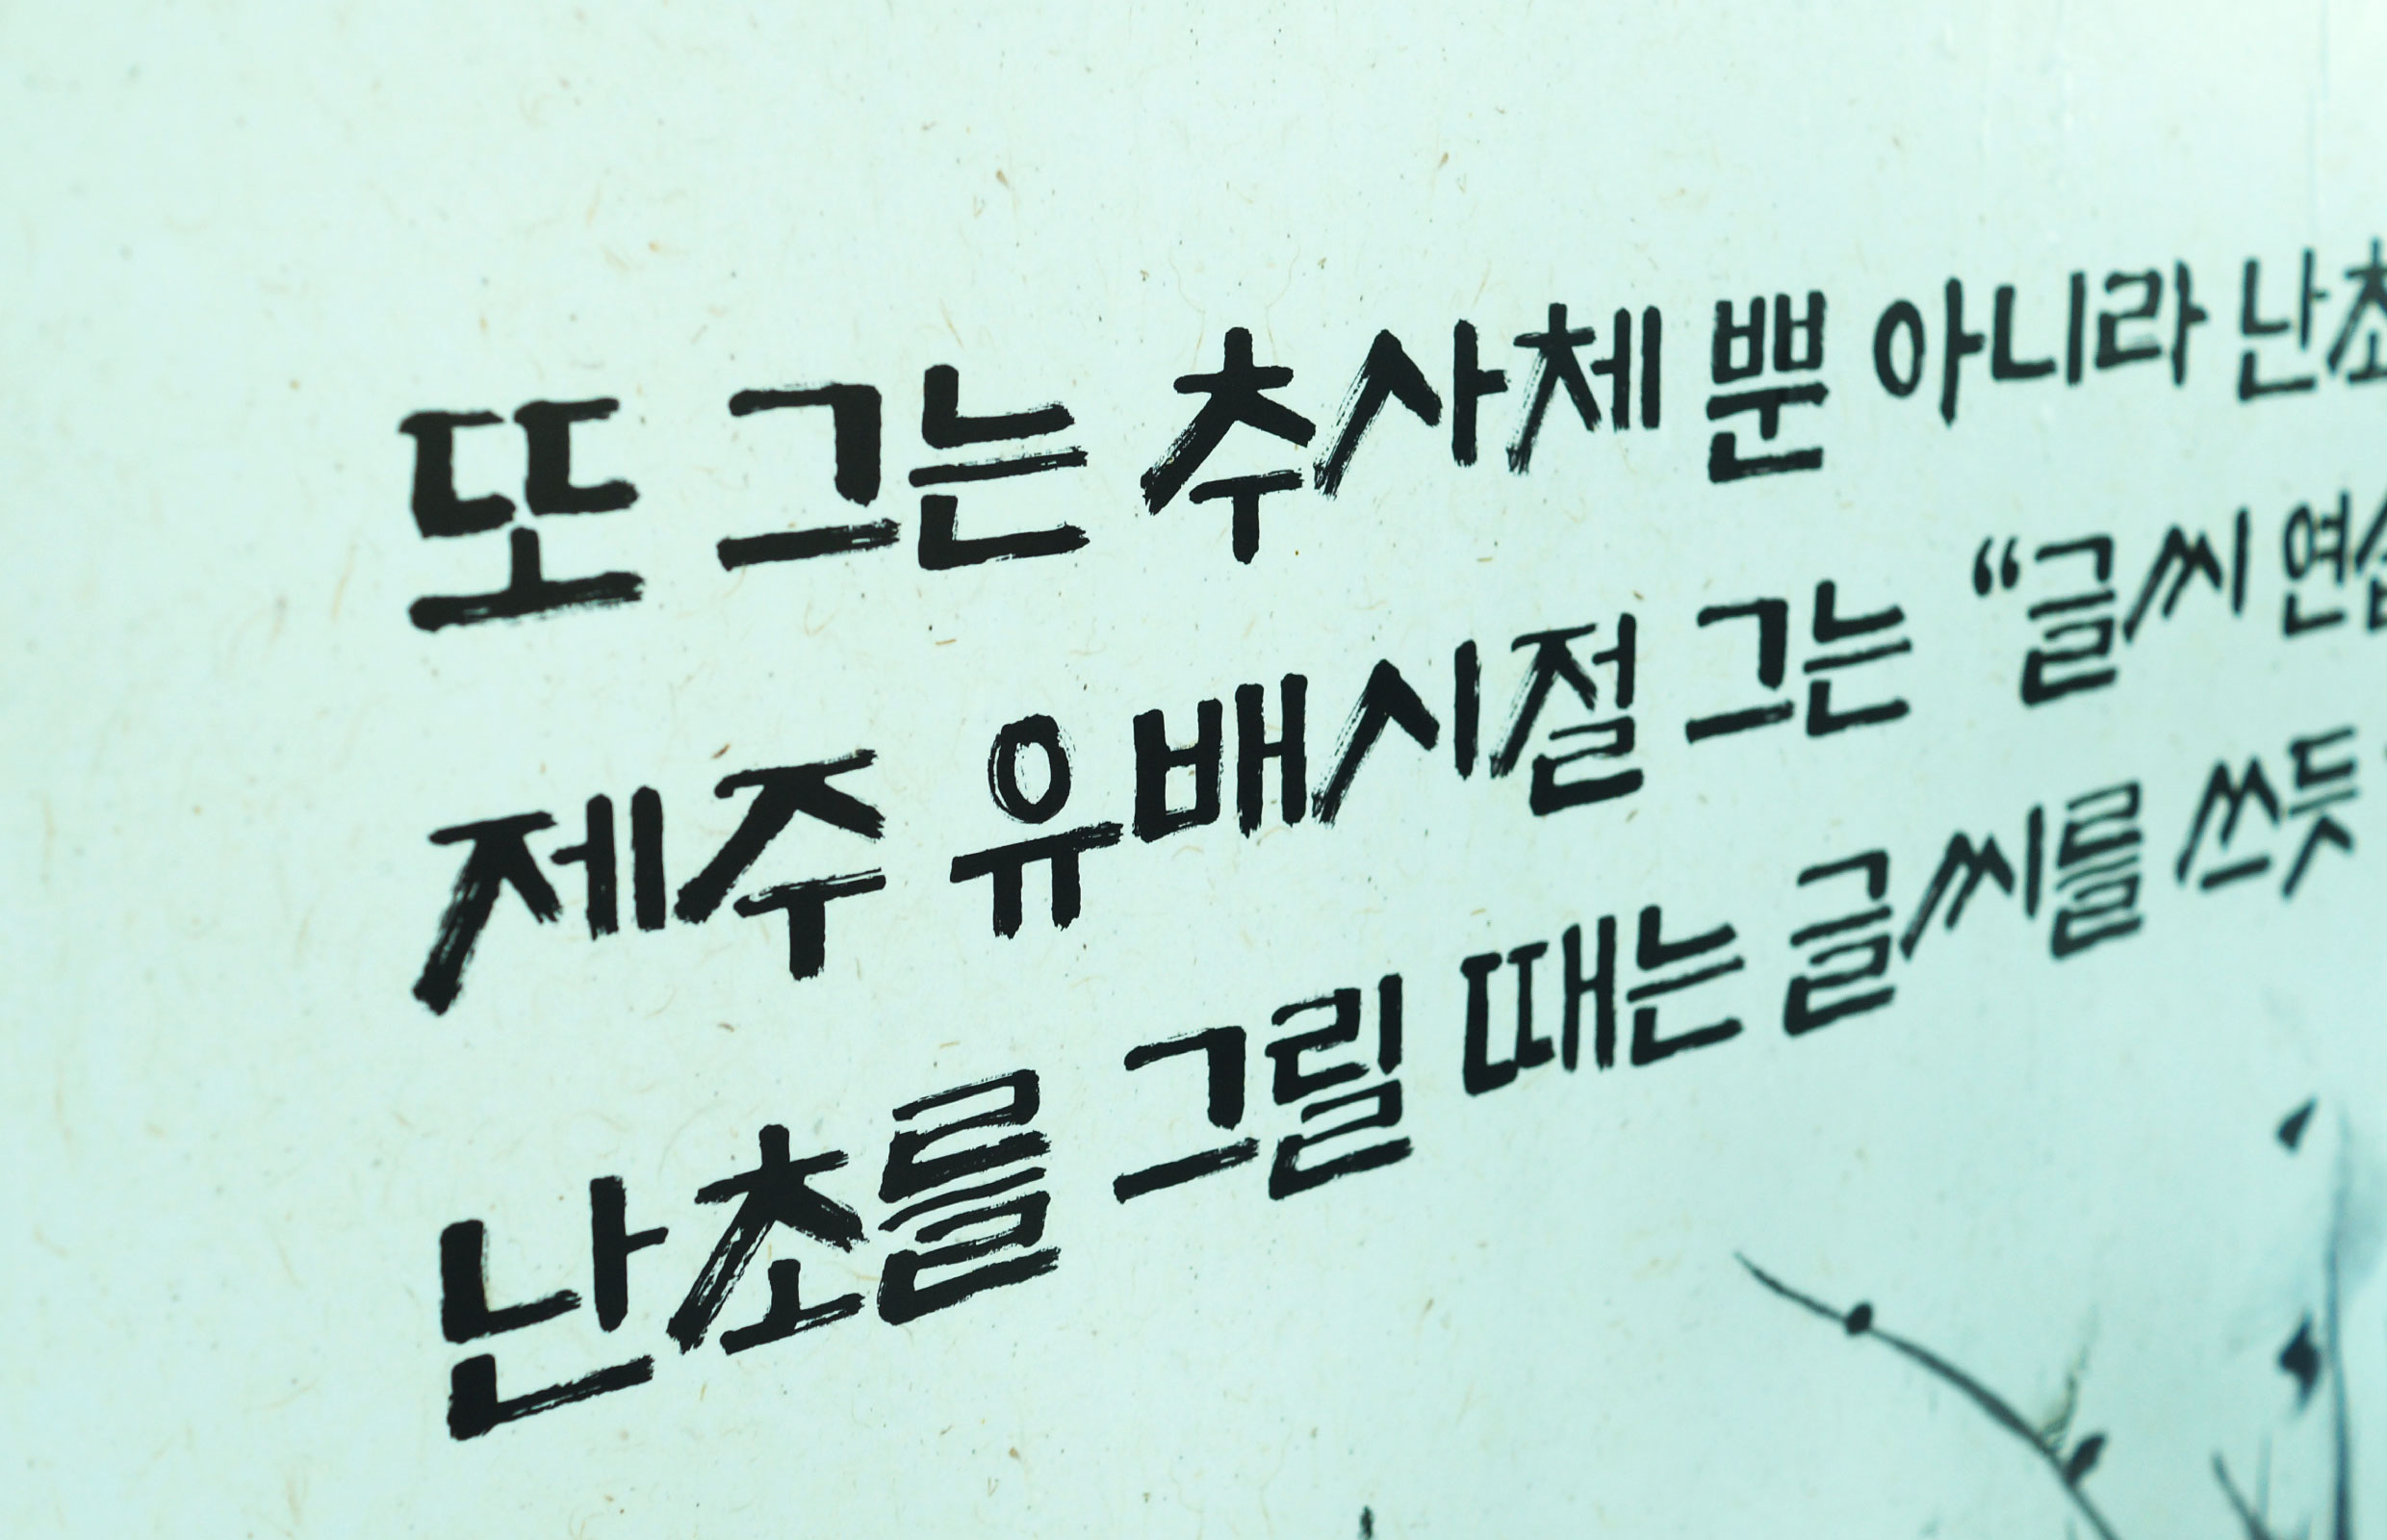 또 그는 추사체 뿐 아니라 난초
제주 유배시절 그는 “글씨 연습
난초를 그릴 때는 글씨를 쓰듯